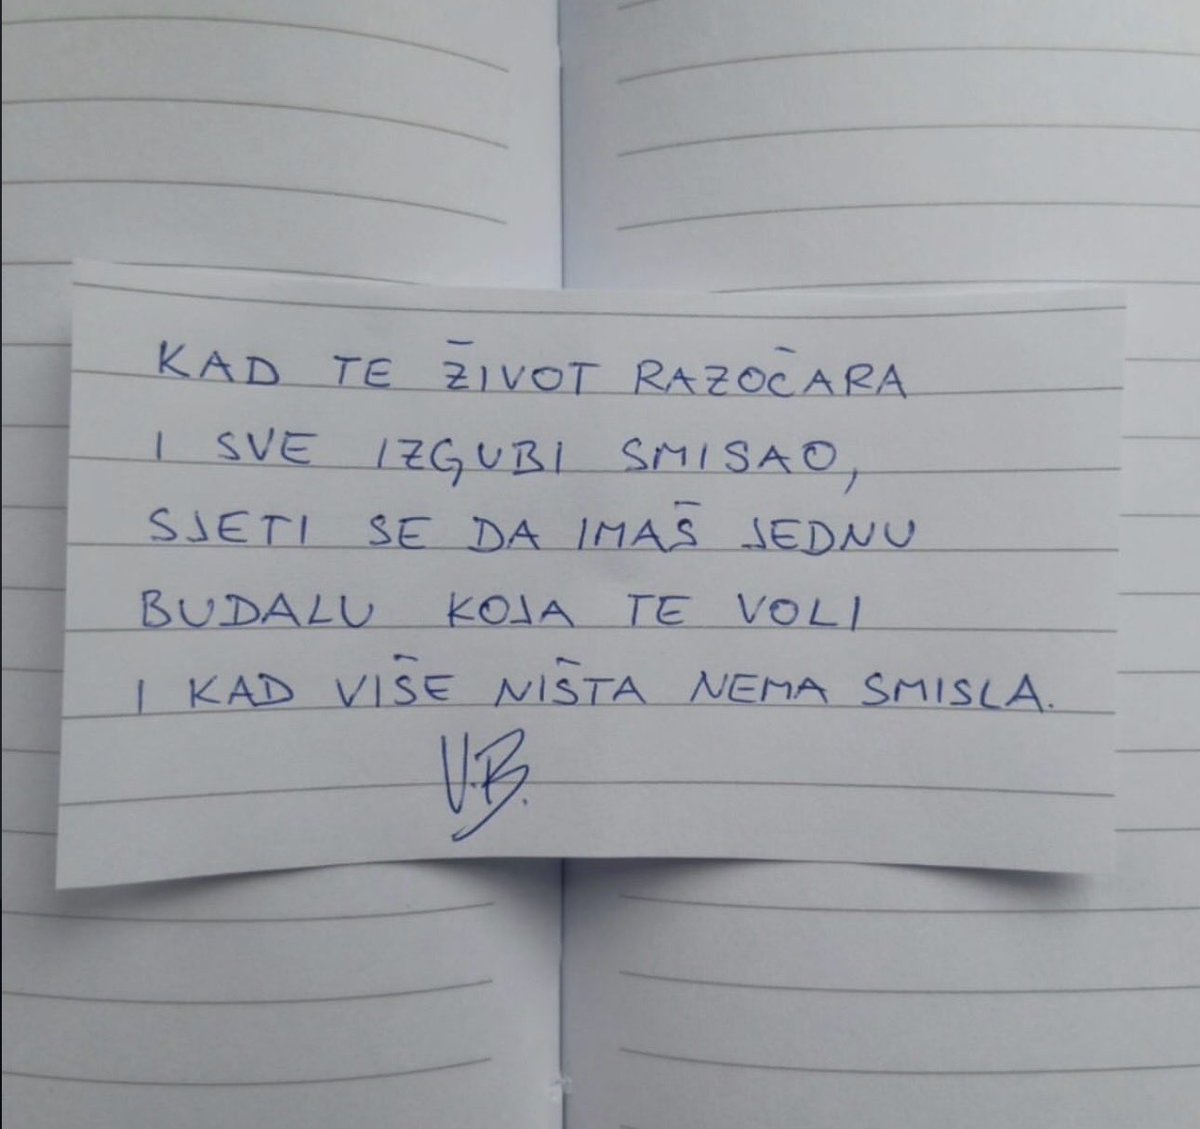 KAD TE ŽIVOT RAZOČARA
I SVE IZGUBI SMISAO,
SJETI SE DA IMAŠ JEDNU
BUDALU KOJA TE VOLI
I KAD VIŠE NIŠTA NEMA SMISLA.
V.B.